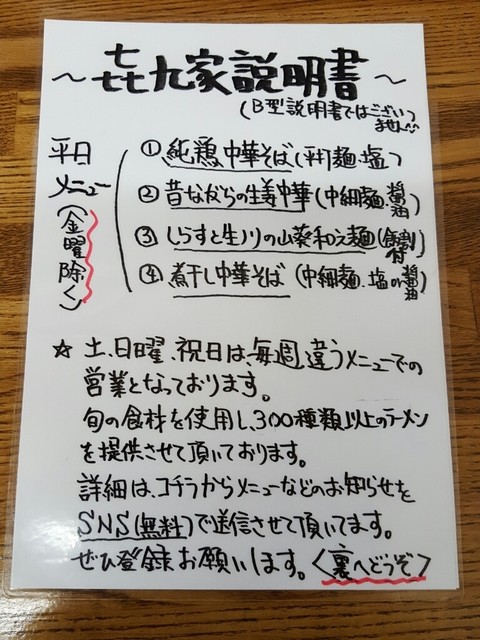 ～㐂九家説明書～
(B型説明書ではございません)
平日メニュー(金曜除く)
① 純鶏中華そば(平打麺、塩)
② 昔ながらの生姜中華(中細麺、醤油)
③ しらすと生ノリの山葵和え麺(飯割付)
④ 煮干し中華そば(中細麺、塩or醤油)
☆ 土、日曜、祝日は、毎週、違うメニューでの
営業となっております。
旬の食材を使用し、300種類以上のラーメン
を提供させて頂いております。
詳細は、コチラからメニューなどのお知らせを
SNS(無料)で送信させて頂いてます。
ぜひ登録お願いします。〈裏へどうぞ〉